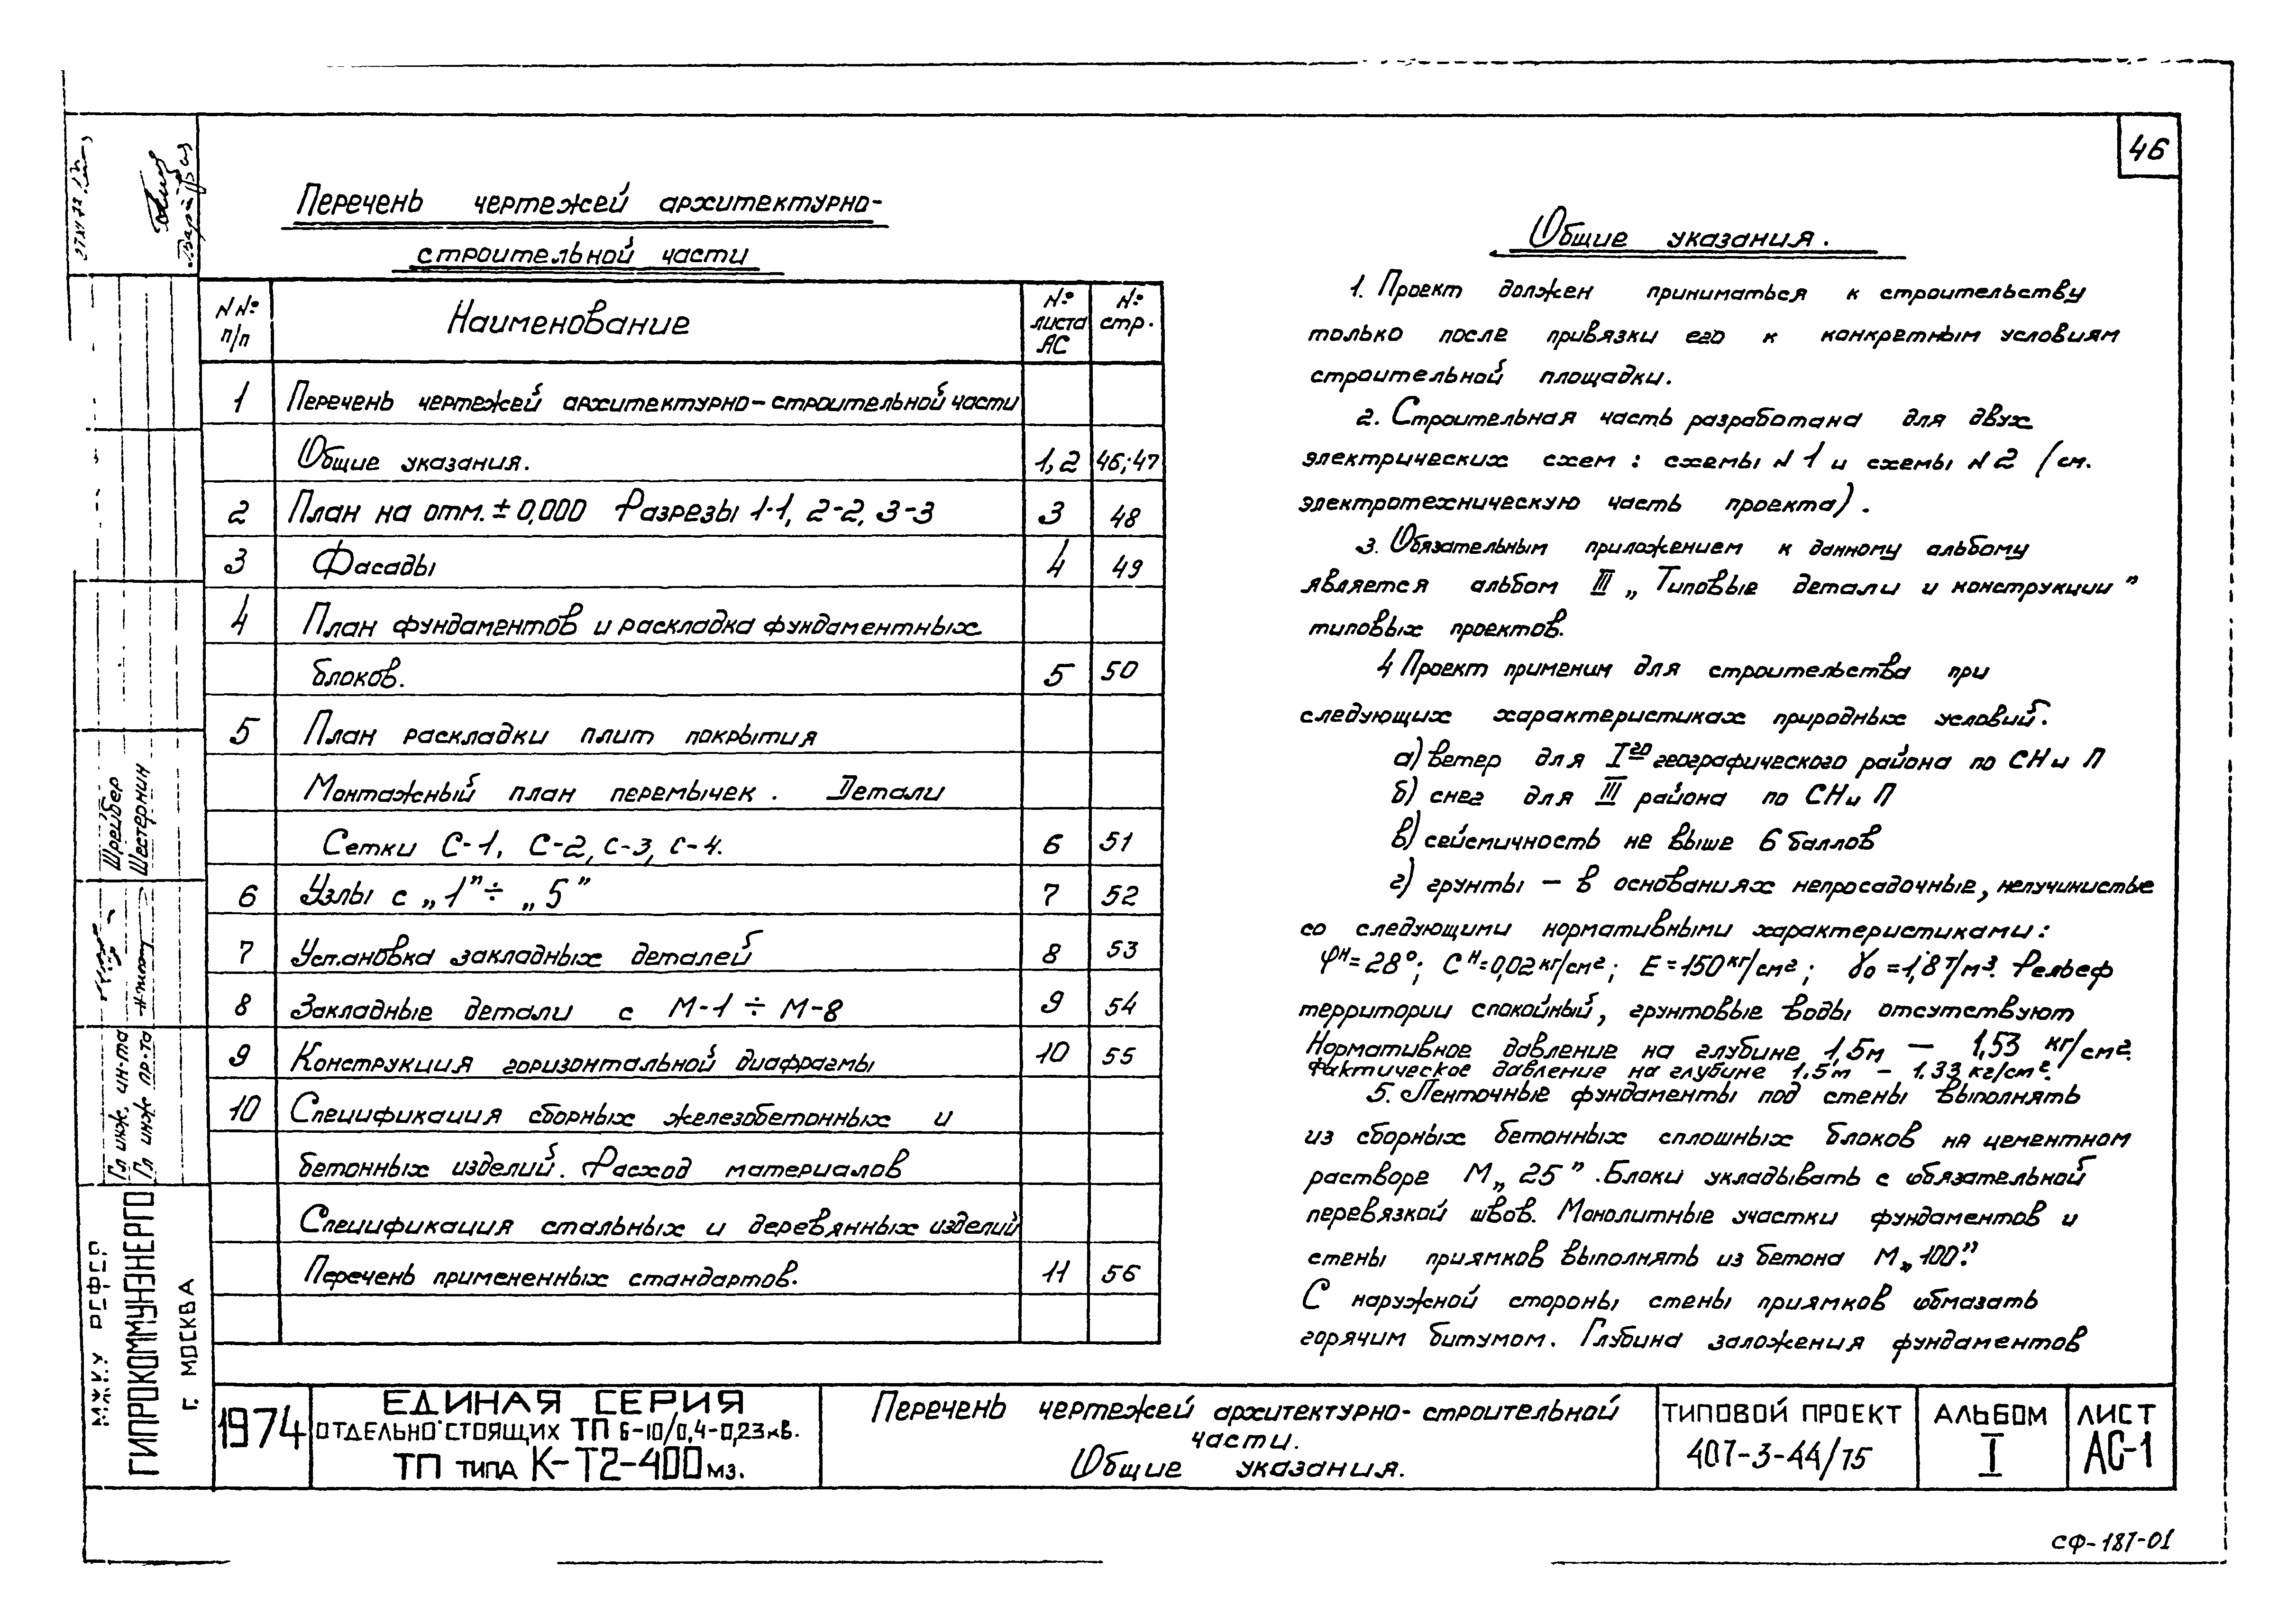 46
Перечень чертежей архитектурно-
строительной части
NN: п/п
Наименование
N: листа АС
N: стр.
1 Перечень чертежей архитектурно-строительной части
Общие указания. 1,2 46;47
2 План на отм. ± 0,000 Разрезы 1-1, 2-2, 3-3 3 48
3 Фасады 4 49
4 План фундаментов и раскладка фундаментных
блоков. 5 50
5 План раскладки плит покрытия
Монтажный план перемычек. Детали
Сетки С-1, С-2, С-3, С-4. 6 51
6 Узлы с „1" ÷ „5" 7 52
7 Установка закладных деталей 8 53
8 Закладные детали с М-1 ÷ М-8 9 54
9 Конструкция горизонтальной диафрагмы 10 55
10 Спецификация сборных железобетонных и
бетонных изделий. Расход материалов
Спецификация стальных и деревянных изделий
Перечень примененных стандартов. 11 56
Общие указания.
1. Проект должен приниматься к строительству
только после привязки его к конкретным условиям
строительной площадки.
2. Строительная часть разработана для двух
электрических схем : схемы N 1 и схемы N 2 /см.
электротехническую часть проекта).
3. Обязательным приложением к данному альбому
является альбом III „ Типовые детали и конструкции "
типовых проектов.
4 Проект применим для строительства при
следующих характеристиках природных условий.
а) ветер для Iго географического района по СН и П
б) снег для III района по СН и П
в) сейсмичность не выше 6 баллов
г) грунты – в основаниях непросадочные, непучинистые
со следующими нормативными характеристиками:
φн = 28°; Cн = 0,02 кг/см2; E = 150 кг/см2; γо = 1,8 т/м3. Рельеф
территории спокойный, грунтовые воды отсутствуют
Нормативное давление на глубине 1,5м – 1,53 кг/см2.
Фактическое давление на глубине 1.5м – 1.33 кг/см2.
5. Ленточные фундаменты под стены выполнять
из сборных бетонных сплошных блоков на цементном
растворе М „ 25 ". Блоки укладывать с обязательной
перевязкой швов. Монолитные участки фундаментов и
стены приямков выполнять из бетона М „100".
С наружной стороны стены приямков обмазать
горячим битумом. Глубина заложения фундаментов
Шрейбер
Шестернин
Гл инж. ин-та
Гл инж пр-та
МЖКХ РСФСР
ГИПРОКОММУНЭНЕРГО
Г. МОСКВА
1974
ЕДИНАЯ СЕРИЯ
ОТДЕЛЬНО СТОЯЩИХ ТП 6-10/0,4-0,23кв.
ТП ТИПА К-Т2-400 мз.
Перечень чертежей архитектурно-строительной
части.
Общие указания.
ТИПОВОЙ ПРОЕКТ
407-3-44/75
АЛЬБОМ
I
ЛИСТ
АС-1
СФ-187-01